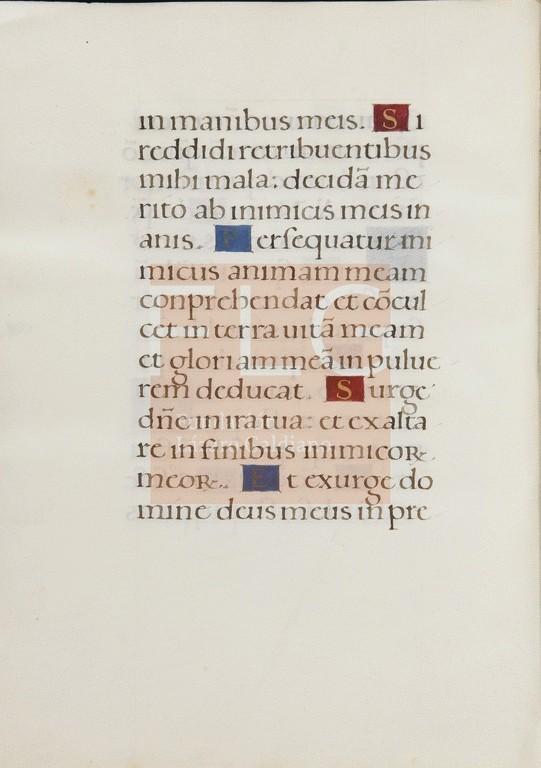 in manibus meis. Si
reddidi retribuentibus
mihi mala: decidã me
rito ab inimicis meis in
anis. Persequatur ini
micus animam meam
conprehendat et cõcul
cet in terra uitã meam
et gloriam meã in pulue
rem deducat. Surge
dñe in ira tua: et exalta
re in finibus inimicoꝝ
meoꝝ. Et exurge do
mine deus meus in pre
FLG
Lázaro Galdiano